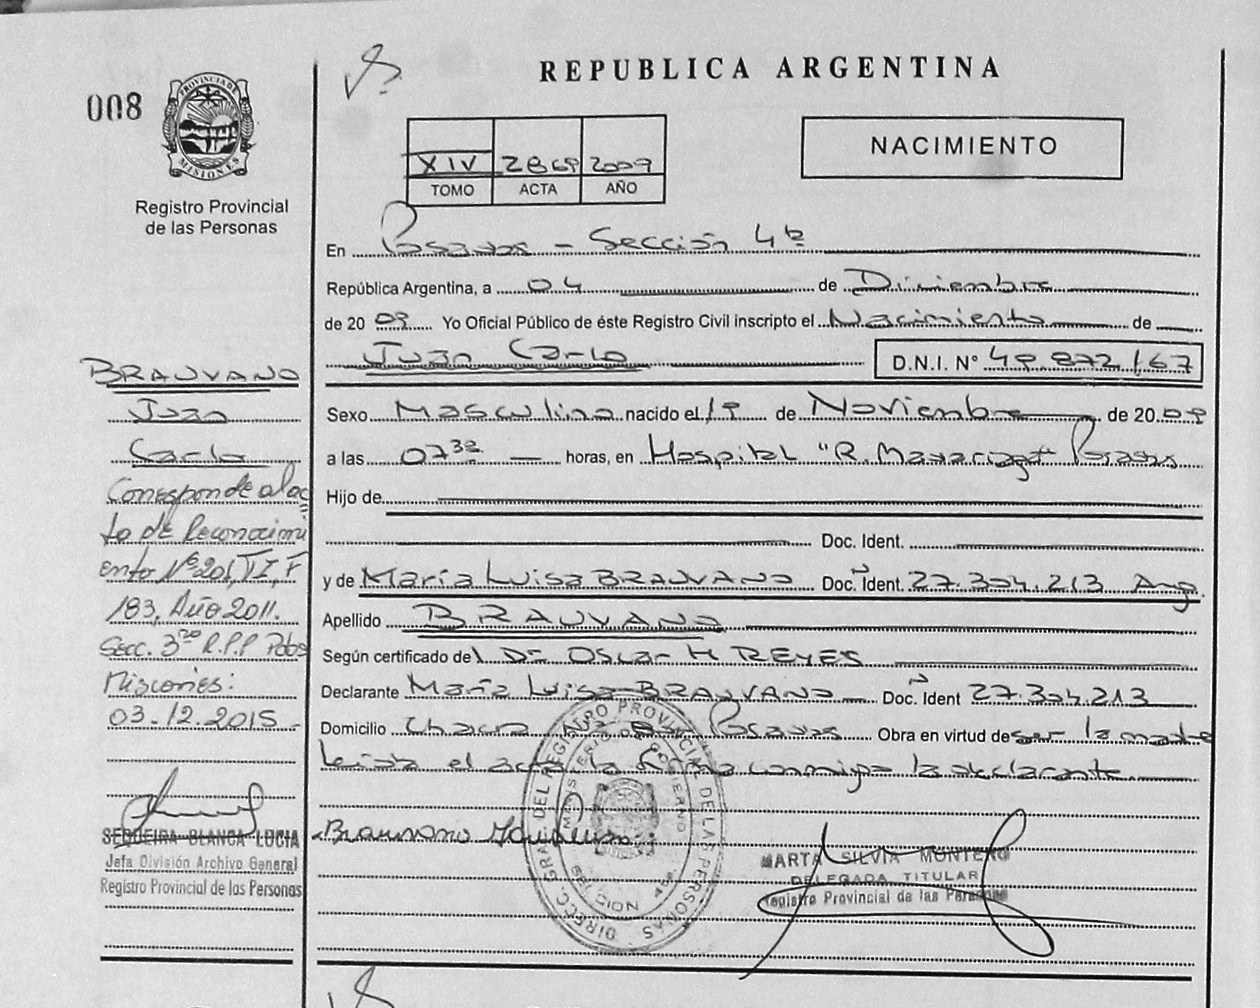 008
PROVINCIA DE MISIONES
Registro Provincial
de las Personas
REPUBLICA ARGENTINA
NACIMIENTO
XIV 2009
TOMO ACTA AÑO
En Posadas - Sección 4ta
República Argentina, a 04 de Diciembre
de 2009 Yo Oficial Público de éste Registro Civil inscripto el Nacimiento de
Juan Carlo D.N.I. Nº 49.872.167
Sexo Masculino nacido el 19 de Noviembre de 2009
a las 07 30 horas, en Hospital "R. Madariaga" Posadas
Hijo de
Doc. Ident.
y de María Luisa BRAUVANO Doc. Ident. 27.304.213 Arg
Apellido BRAUVANO
Según certificado del Dr OSCAR H REYES
Declarante María Luisa BRAUVANO Doc. Ident 27.304.213
Domicilio Chacra Posadas Obra en virtud de ser la madre
Leída el acta la firma conmigo la declarante
BRAUVANO
Juan
Carlo
Corresponde al ac
to de Reconocimi
ento Nº 201, T I, F
183, Año 2011.
Secc. 3ra R.P.P Pdas
Misiones:
03.12.2015
SEQUEIRA BLANCA LUCIA
Jefa División Archivo General
Registro Provincial de las Personas
DIRECC. GRAL. DEL REGISTRO PROVINCIAL DE LAS PERSONAS
MINISTERIO DE GOBIERNO
SECCION 4ta
MARTA SILVIA MONTERO
DELEGADA TITULAR
Registro Provincial de las Personas